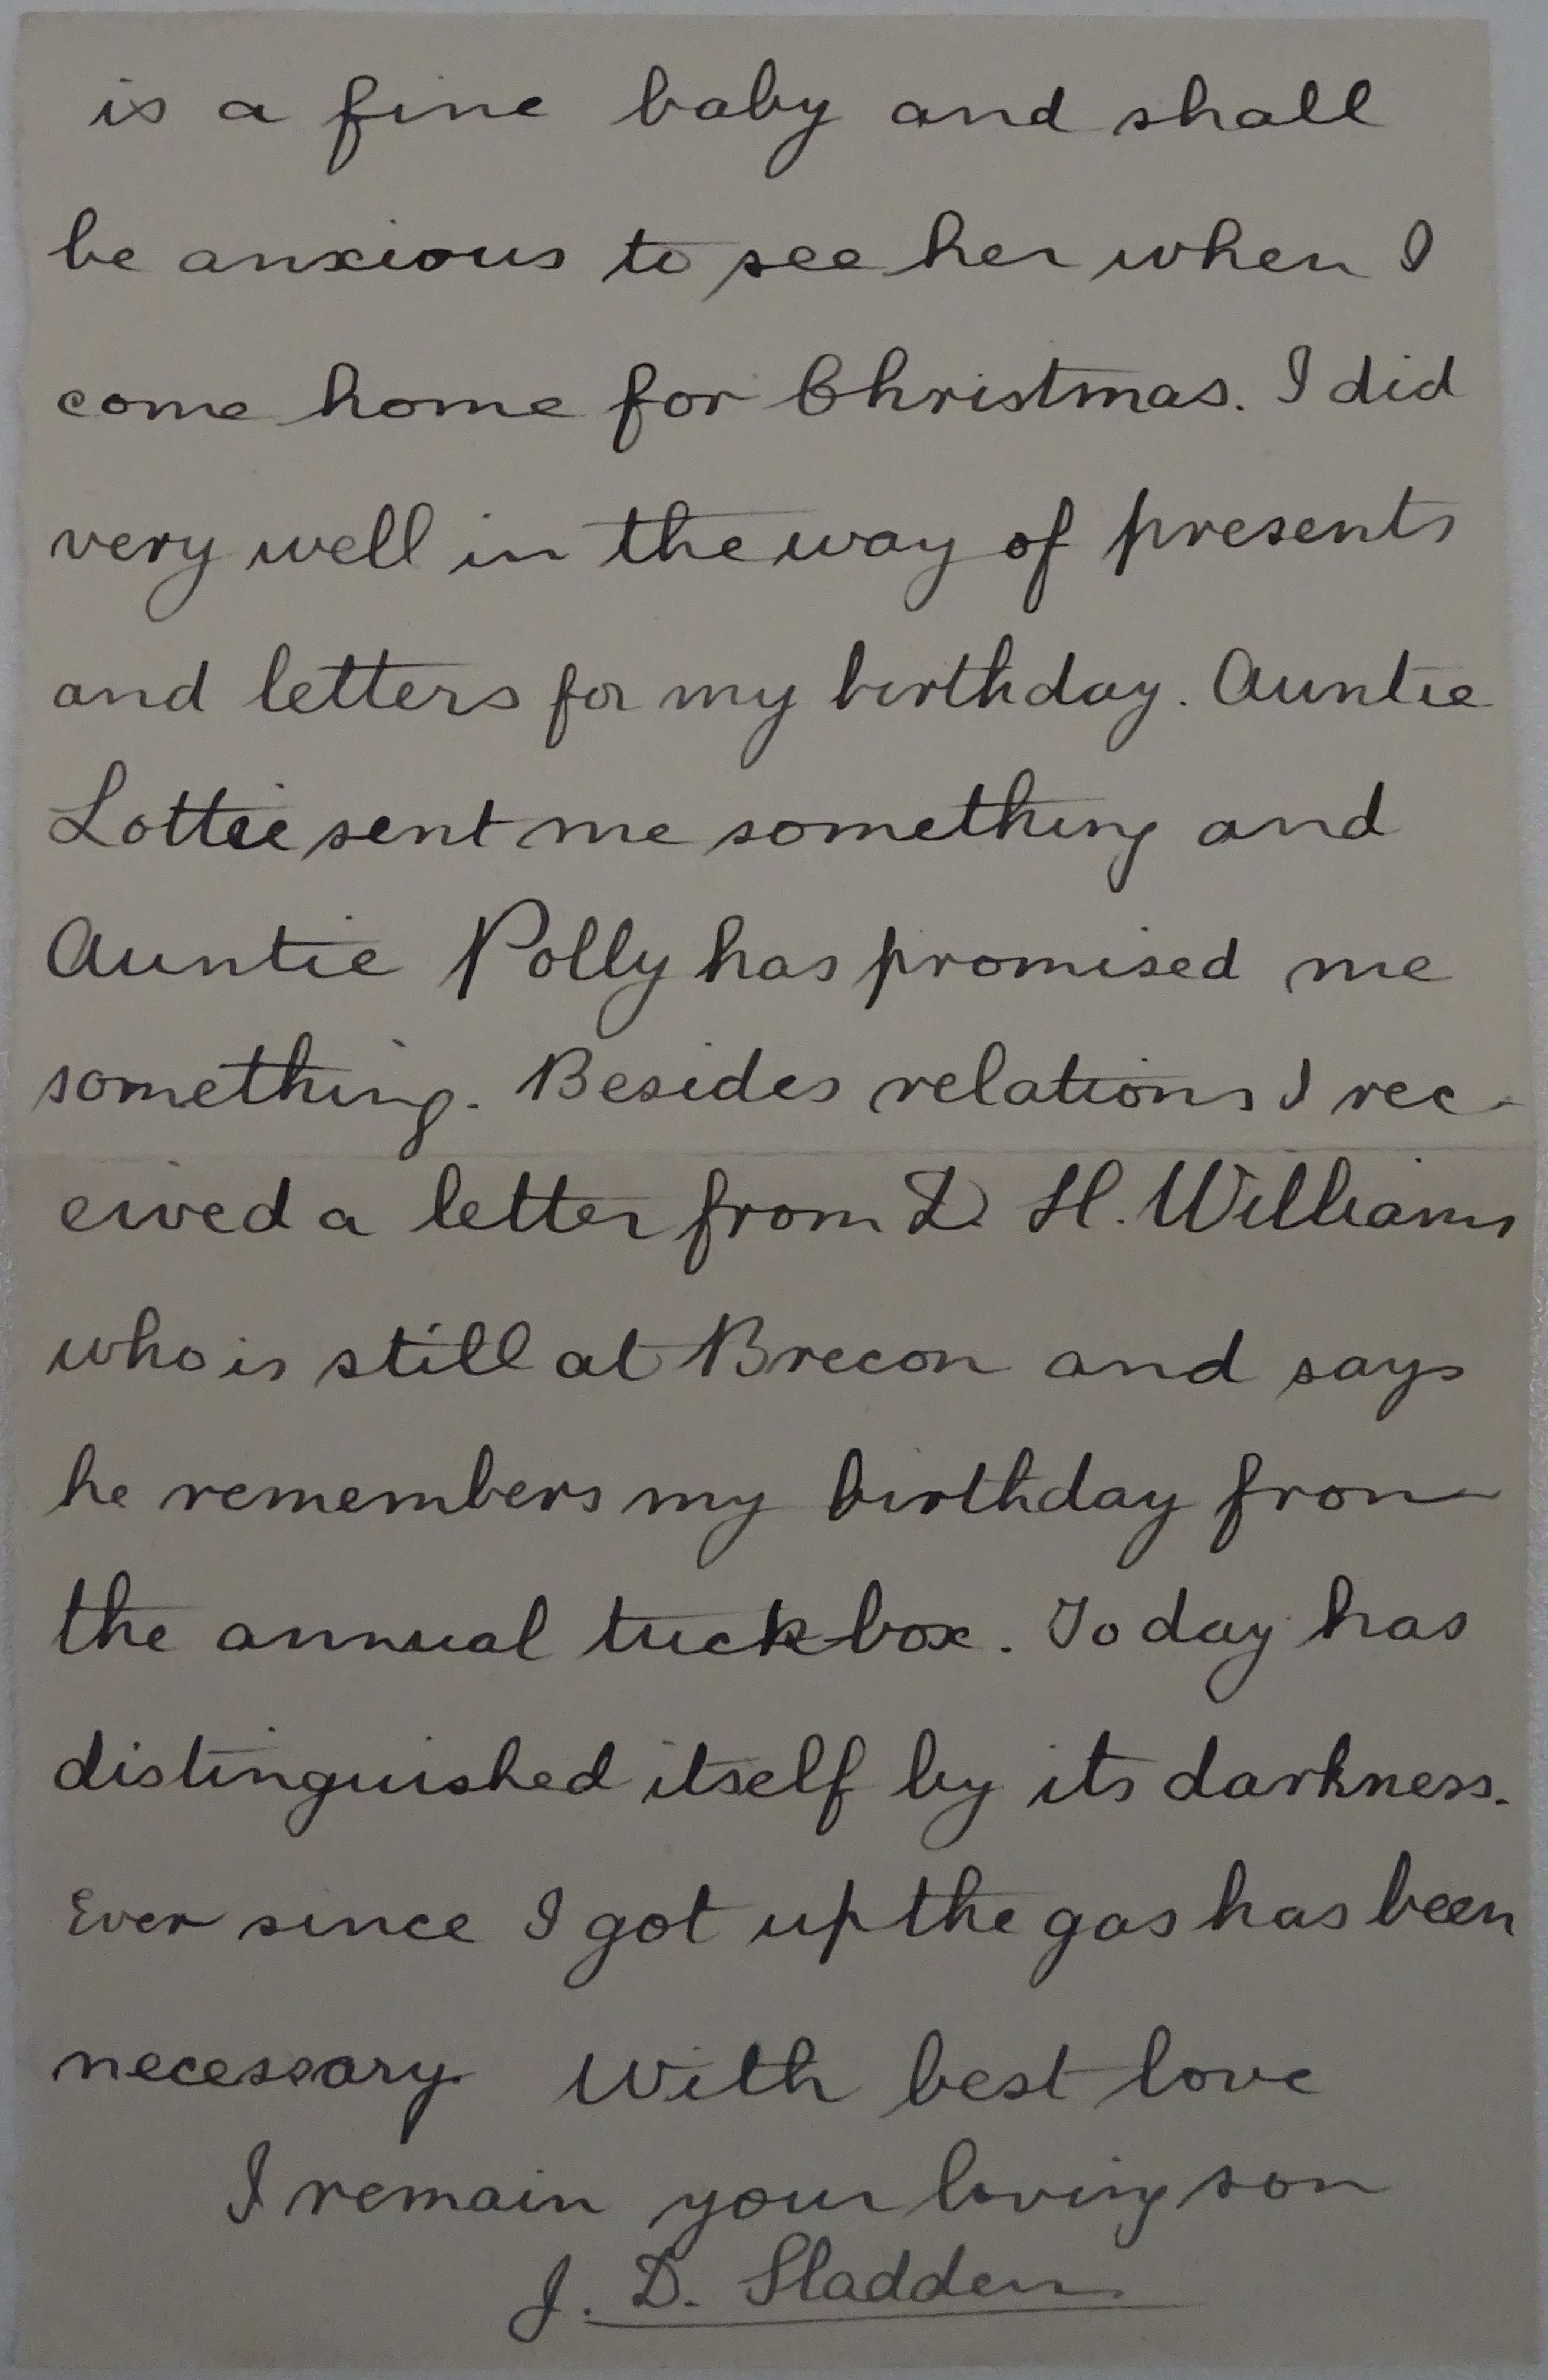 is a fine baby and shall
be anxious to see her when I
come home for Christmas. I did
very well in the way of presents
and letters for my birthday. Auntie
Lottie sent me something and
Auntie Polly has promised me
something. Besides relations I rec-
eived a letter from D. H. Williams
who is still at Brecon and says
he remembers my birthday from
the annual tuck-box. To day has
distinguished itself by its darkness.
Ever since I got up the gas has been
necessary. With best love
I remain your loving son
J. D. Sladden